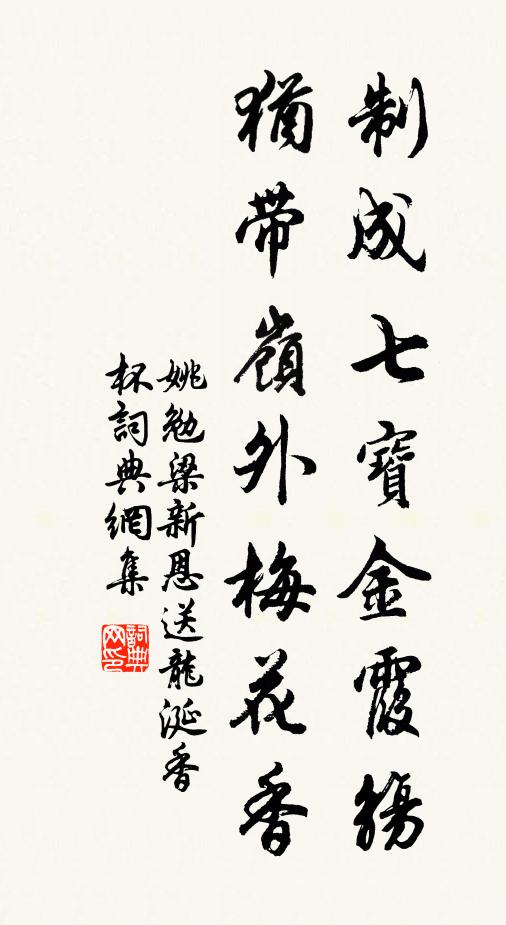 制成七寶金霞觴
猶带嶺外梅花香
姚勉梁新恩送龍涎香
杯詞典網集
詞典網印